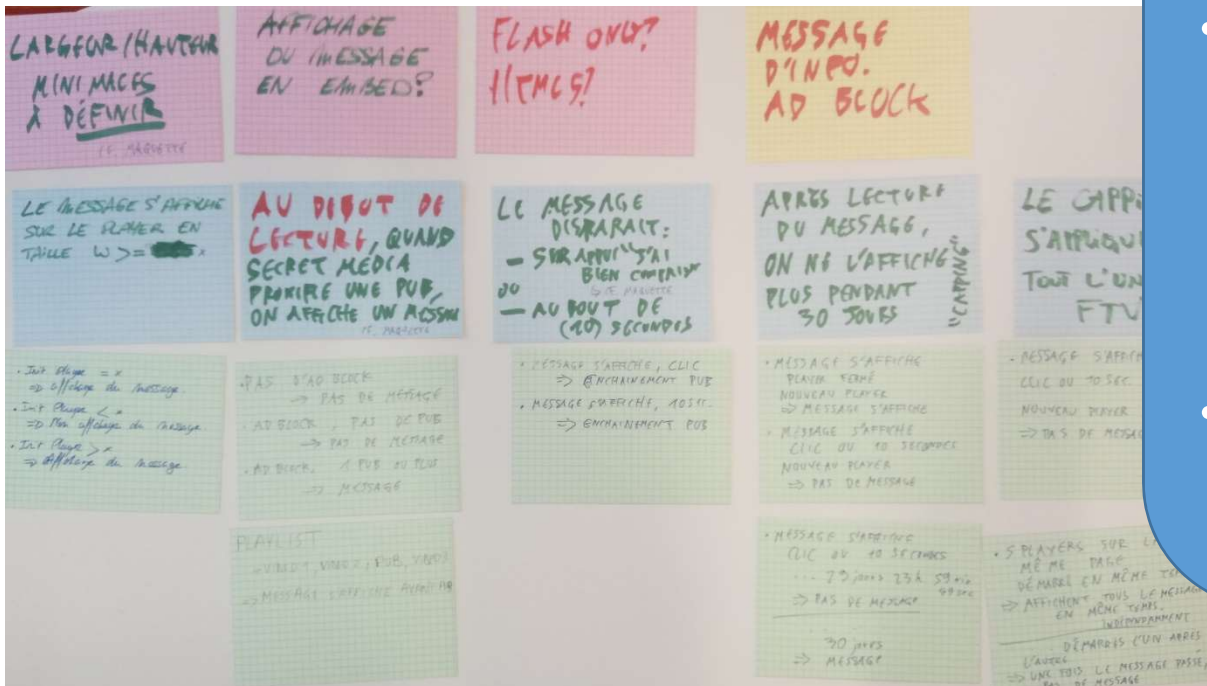 LARGEUR/HAUTEUR
MINIMALES
À DÉFINIR
CF. MAQUETTE
AFFICHAGE
DU MESSAGE
EN EMBED?
FLASH ONLY?
HTML5?
MESSAGE
D'INFO.
AD BLOCK
LE MESSAGE S'AFFICHE
SUR LE PLAYER EN
TAILLE W >= x
AU DEBUT DE
LECTURE, QUAND
SECRET MEDIA
PROXIFIE UNE PUB,
ON AFFICHE UN MESSAGE
CF. MAQUETTE
LE MESSAGE
DISPARAIT:
- SUR APPUI "J'AI
BIEN COMPRIS"
CF. MAQUETTE
OU
- AU BOUT DE
(10) SECONDES
APRÈS LECTURE
DU MESSAGE,
ON NE L'AFFICHE
PLUS PENDANT
30 JOURS
"CAPPING"
LE CAPPI
S'APPLIQU
TOUT L'UN
FTV
• Init Player = x
=> affichage du message.
• Init Player < x
=> Non affichage du message.
• Init Player > x
=> Affichage du message.
• PAS D'AD BLOCK
=> PAS DE MESSAGE
• AD BLOCK, PAS DE PUB
=> PAS DE MESSAGE
• AD BLOCK, 1 PUB AU PLUS
=> MESSAGE
• MESSAGE S'AFFICHE, CLIC
=> ENCHAINEMENT PUB
• MESSAGE S'AFFICHE, 10 SEC.
=> ENCHAINEMENT PUB
• MESSAGE S'AFFICHE
PLAYER FERMÉ
NOUVEAU PLAYER
=> MESSAGE S'AFFICHE
• MESSAGE S'AFFICHE
CLIC OU 10 SECONDES
NOUVEAU PLAYER
=> PAS DE MESSAGE
• MESSAGE S'AFFICH
CLIC OU 10 SEC.
NOUVEAU PLAYER
=> PAS DE MESSAG
PLAYLIST
VIDEO 1, VIDEO 2, PUB, VIDEO 3
=> MESSAGE S'AFFICHE AVANT
• MESSAGE S'AFFICHE
CLIC OU 10 SECONDES
... 29 jours 23h 59 min
59 sec
=> PAS DE MESSAGE
30 jours
=> MESSAGE
• 5 PLAYERS SUR LA
MÊME PAGE
DÉMARRÉ EN MÊME TEM
=> AFFICHENT TOUS LE MESSAGE
EN MÊME TEMPS.
INDÉPENDAMMENT
DÉMARRÉS L'UN APRÈS
L'AUTRE
=> UNE FOIS LE MESSAGE PASSÉ,
PAS DE MESSAGE